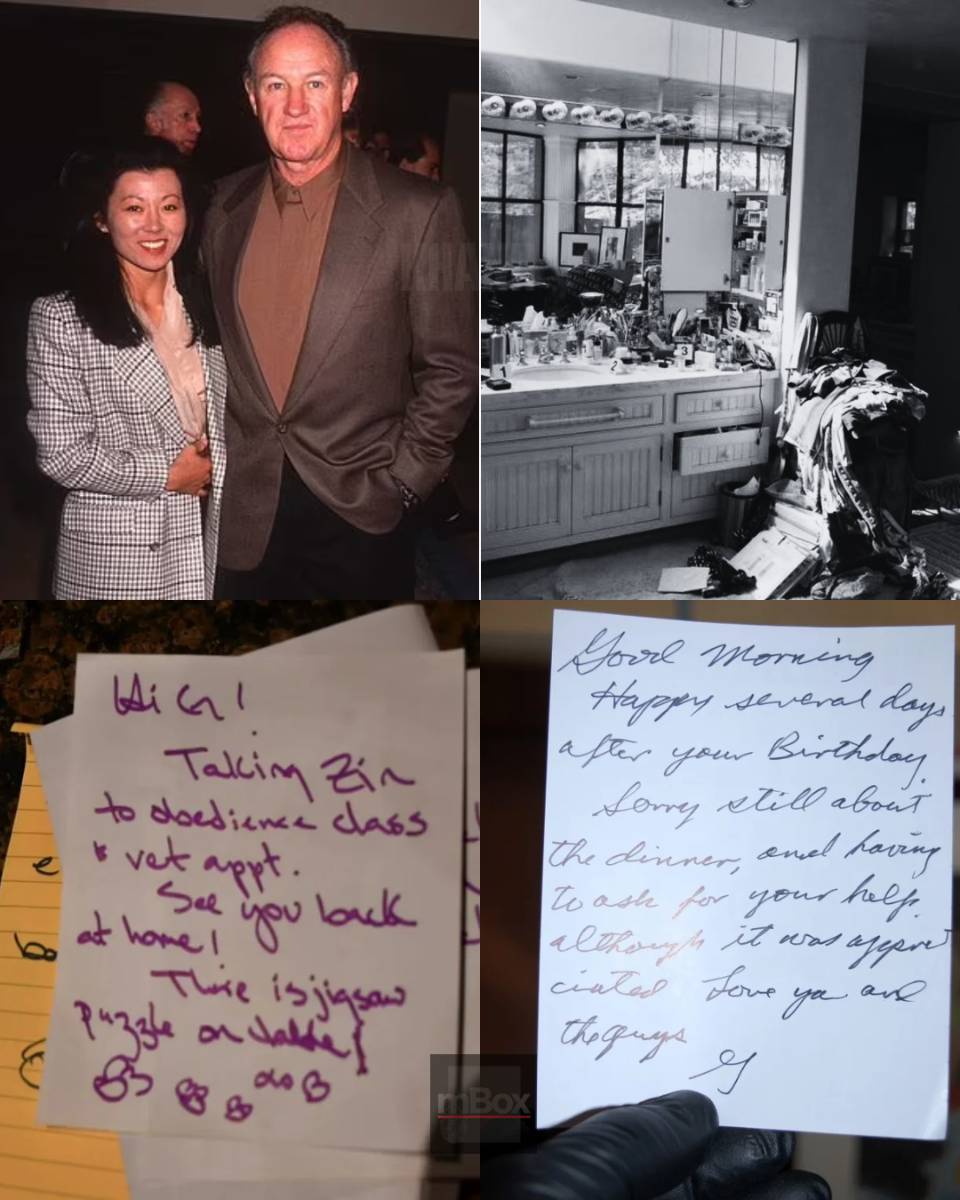 1
2
3
Hi G!
Taking Zin
to obedience class
& vet appt.
See you back
at home!
There is jigsaw
puzzle on table!
Good Morning
Happy several days
after your Birthday.
Sorry still about
the dinner, and having
to ask for your help.
although it was appre
ciated Love ya and
the guys
G
mBox